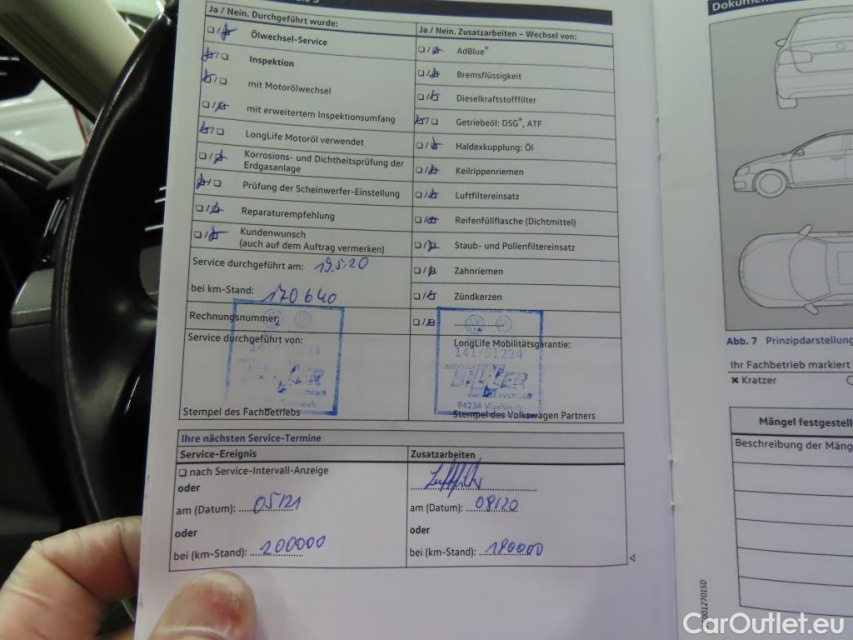 Ja / Nein. Durchgeführt wurde:
Ölwechsel-Service
Inspektion
mit Motorölwechsel
mit erweitertem Inspektionsumfang
LongLife Motoröl verwendet
Korrosions- und Dichtheitsprüfung der
Erdgasanlage
Prüfung der Scheinwerfer-Einstellung
Reparaturempfehlung
Kundenwunsch
(auch auf dem Auftrag vermerken)
Service durchgeführt am: 19.5.20
bei km-Stand: 170 640
Rechnungsnummer:
Service durchgeführt von:
Stempel des Fachbetriebs
Ja / Nein. Zusatzarbeiten – Wechsel von:
AdBlue®
Bremsflüssigkeit
Dieselkraftstofffilter
Getriebeöl: DSG®, ATF
Haldexkupplung: Öl
Keilrippenriemen
Luftfiltereinsatz
Reifenfüllflasche (Dichtmittel)
Staub- und Pollenfiltereinsatz
Zahnriemen
Zündkerzen
LongLife Mobilitätsgarantie:
141/51234
94234
Stempel des Volkswagen Partners
Ihre nächsten Service-Termine
Service-Ereignis
nach Service-Intervall-Anzeige
oder
am (Datum): 05/21
oder
bei (km-Stand): 200000
Zusatzarbeiten
Luftfilter
am (Datum): 08/20
oder
bei (km-Stand): 180000
Abb. 7 Prinzipdarstellung
Ihr Fachbetrieb markiert
✖ Kratzer
Mängel festgestell
Beschreibung der Mäng
CarOutlet.eu